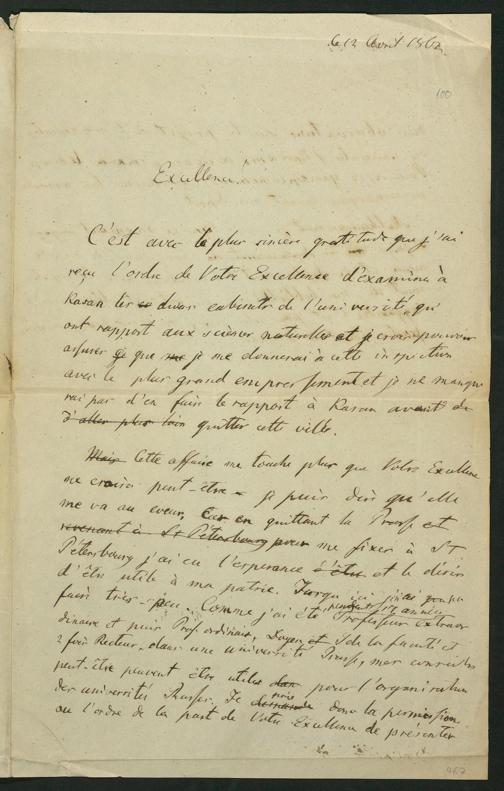 le 12 Avril 1862.
100
Excellence.
C'est avec le plus sincère gratitude que j'ai
reçu l'ordre de Votre Excellence d'examiner à
Kasan les divers cabinets de l'université, qui
ont rapport aux sciences naturelles et je crois pouvoir
assurer que je me donnerai à cette inspection
avec le plus grand empressement et je ne manque
rai pas d'en faire le rapport à Kasan avant de
d'aller plus loin quitter cette ville.
Mais Cette affaire me touche plus que Votre Excellence
ne croira peut-être - je puis dire qu'elle
me va au coeur, Car en quittant la Prusse et
revenant à St Pétersbourg pour me fixer à St
Pétersbourg j'ai eu l'esperance d'être et le désir
d'être utile à ma patrie. Jusqu'ici j'ai pu
faire très-peu. Comme j'ai été Professeur extraor
dinaire et puis Prof. ordinaire, Doyen de la faculté et
2 fois Recteur, dans une université Prusse, mes conseils
peut-être peuvent être utiles pour l'organisation
des universités Russes. Je demande donc la permission
ou l'ordre de la part de Votre Excellence de présenter